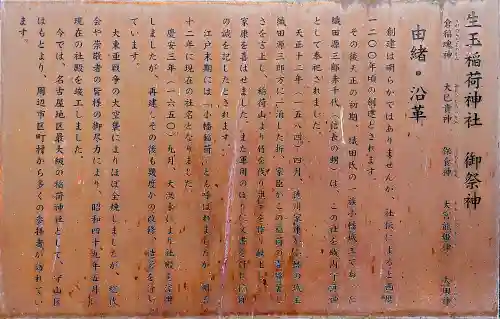 生玉稲荷神社 御祭神
倉稲魂神 大己貴神 保食神 大宮能姫神 太田神
由緒・沿革
創建は明らかではありませんが、社伝によると西暦
一二〇〇年頃の創建とされます。
その後天正の初期、織田氏の一族小幡城主であった
織田源三郎信千代(信長の甥)は、この社を城内守護神
として奉斎されました。
天正十二年(一五八四)四月、徳川家康が
織田源三郎方に一泊した折、家臣から
さを言上し、稲荷山より竹を伐り旗
家康を喜ばせました。また軍用の
の誠を記したとされます。
江戸末期には「小幡稲荷」とも呼ばれましたが、明治
十二年に現在の社名となりました。
慶安三年(一六五〇)九月、大洪水により社殿
しましたが、再建し、その後も幾度かの改修
大東亜戦争の大空襲によりほぼ全焼しましたが、総代
会や崇敬者の皆様の御尽力により、昭和四十九年五月
現在の社殿を竣工しました。
今では、名古屋地区最大級の稲荷神社として、守山区
はもとより、周辺市区町村から多くの参拝者が訪れてい
ます。